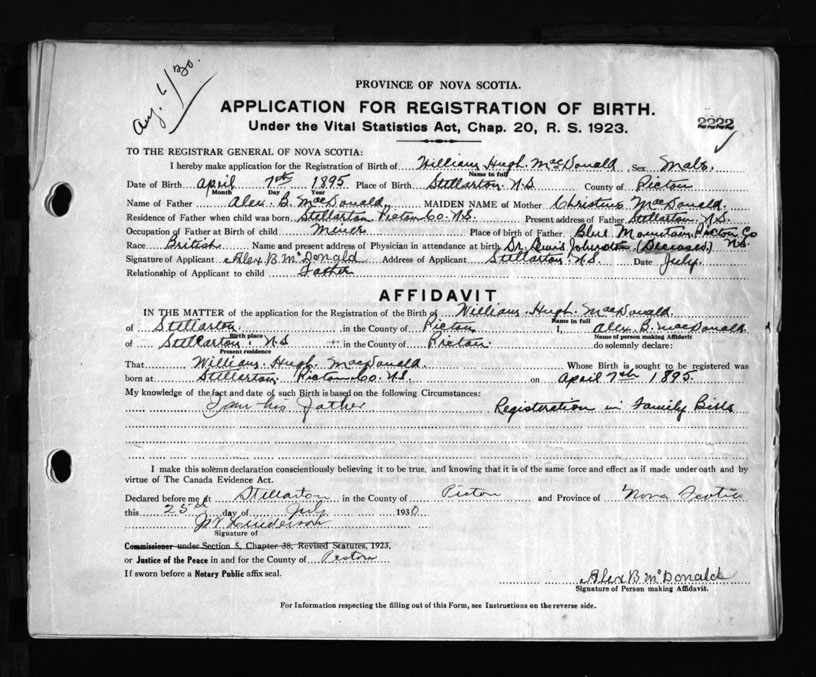 Aug. 6/30.
PROVINCE OF NOVA SCOTIA.
APPLICATION FOR REGISTRATION OF BIRTH.
2222
Under the Vital Statistics Act, Chap. 20, R. S. 1923.
TO THE REGISTRAR GENERAL OF NOVA SCOTIA:
I hereby make application for the Registration of Birth of William Hugh MacDonald, Sex Male.
Name in full
Date of Birth April 7th 1895 Place of Birth Stellarton N.S. County of Pictou
Month Day Year
Name of Father Alex. B. MacDonald MAIDEN NAME of Mother Christina MacDonald.
Residence of Father when child was born Stellarton Pictou Co. N.S. Present address of Father Stellarton N.S.
Occupation of Father at Birth of child Miner Place of birth of Father Blue Mountain, Pictou Co N.S.
Race British Name and present address of Physician in attendance at birth Dr. Lewis Johnston (Deceased)
Signature of Applicant Alex B McDonald Address of Applicant Stellarton N.S. Date July.
Relationship of Applicant to child Father
AFFIDAVIT
IN THE MATTER of the application for the Registration of the Birth of William Hugh MacDonald.
Name in full
of Stellarton in the County of Pictou I, Alex. B. MacDonald
Birth place Name of person making Affidavit
of Stellarton N.S in the County of Pictou do solemnly declare:
Present residence
That William Hugh MacDonald. Whose Birth is sought to be registered was
born at Stellarton Pictou Co. N.S. on April 7th 1895.
My knowledge of the fact and date of such Birth is based on the following Circumstances:
I am his Father Registeration in Family Bible
I make this solemn declaration conscientiously believing it to be true, and knowing that it is of the same force and effect as if made under oath and by
virtue of The Canada Evidence Act.
Declared before me at Stellarton in the County of Pictou and Province of Nova Scotia
this 25th day of July 1930
Signature of
Commissioner under Section 5, Chapter 38, Revised Statutes, 1923,
or Justice of the Peace in and for the County of Pictou
If sworn before a Notary Public affix seal.
Alex B McDonald
Signature of Person making Affidavit.
For Information respecting the filling out of this Form, see Instructions on the reverse side.